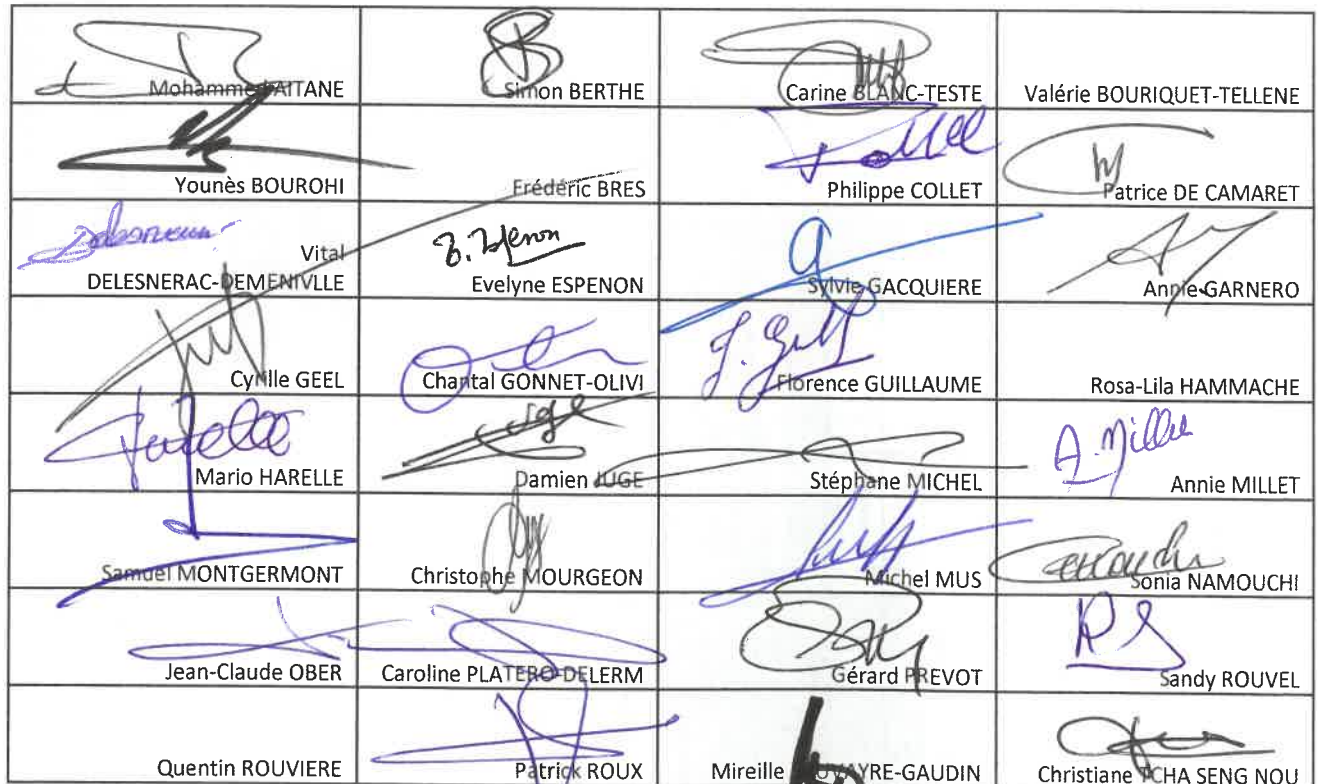 Mohammed AITANE
Simon BERTHE
Carine BLANC-TESTE
Valérie BOURIQUET-TELLENE
Younès BOUROHI
Frédéric BRES
Philippe COLLET
Patrice DE CAMARET
Vital
DELESNERAC-DEMENIVLLE
Evelyne ESPENON
Sylvie GACQUIERE
Annie GARNERO
Cyrille GEEL
Chantal GONNET-OLIVI
J. Guill
Florence GUILLAUME
Rosa-Lila HAMMACHE
Mario HARELLE
Juge
Damien JUGE
Stéphane MICHEL
A. Millet
Annie MILLET
Samuel MONTGERMONT
Christophe MOURGEON
Michel MUS
Sonia NAMOUCHI
Jean-Claude OBER
Caroline PLATERO-DELERM
Gérard PREVOT
RS
Sandy ROUVEL
Quentin ROUVIERE
Patrick ROUX
Mireille
Christiane TCHA SENG NOU